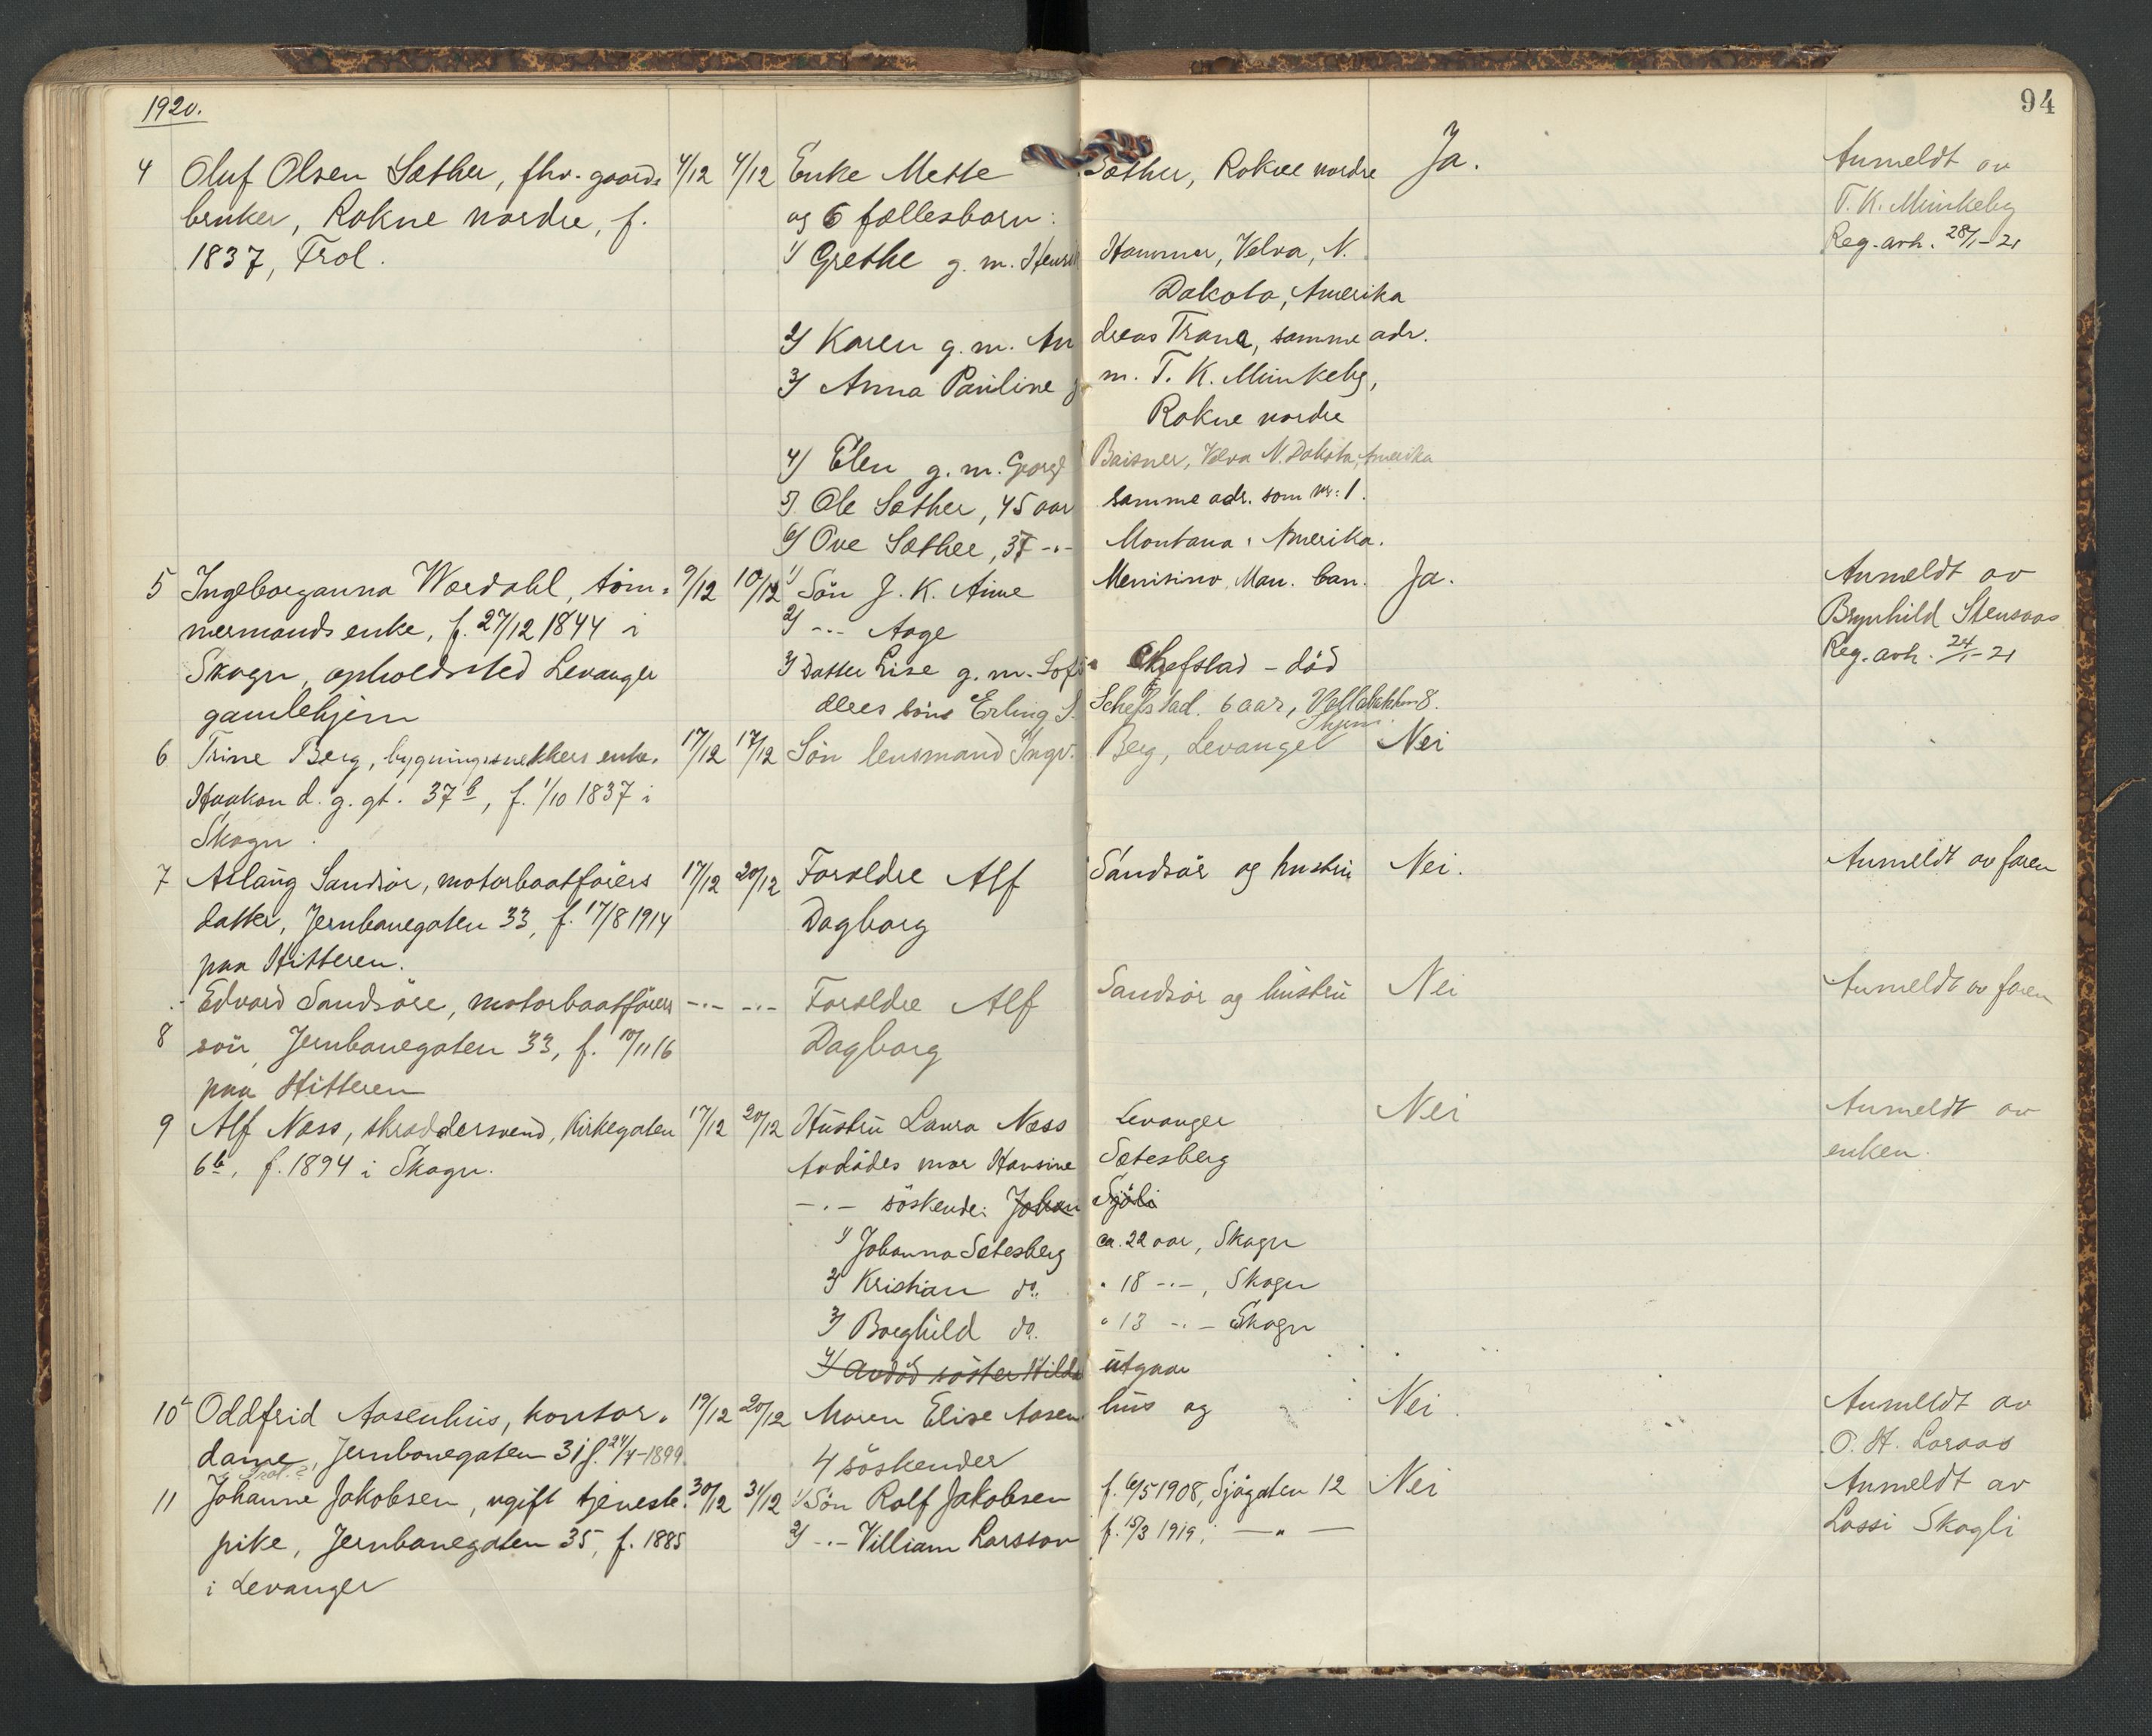 1920.
94
4 Oluf Olsen Sæther, fhv. gaard= 4/12 4/12 Enke Mette Sæther, Rokne nordre Ja. Anmeldt av
bruker, Rokne nordre, f. og 6 fællesbarn: T. K. Munkeby
1837, Frol. 1) Grethe g. m. Henrik Hammer, Velva, N. Reg. avh. 28/1-21
Dakota, Amerika
2) Karen g. m. Andreas Trana, samme adr.
3) Anna Pauline g. m. T. K. Munkeby,
Rokne nordre
4) Elen g. m. Georg Baisner, Velva N. Dakota, Amerika
5) Ole Sæther, 45 aar samme adr. som nr: 1.
6) Ove Sæther, 37 -"- Montana, Amerika.
5 Ingeborganna Wordahl, töm= 9/12 10/12 1) Sön J. K. Aune Menisino, Man. Can. Ja. Anmeldt av
mermands enke, f. 27/12 1844 i 2) -"- Aage Brynhild Stensaas
Skogn, opholdssted Levanger 3) Datter Lise g. m. Schefstad - död Reg. avh. 24/1-21
gamlehjem deres sön Erling S. Schefstad. 6 aar,
6 Trine Berg, bygningssnekkers enke, 17/12 17/12 Sön lensmand Ingv. Berg, Levanger Skjem. Nei
Haakon d. g. gt. 37 b, f. 1/10 1837 i
Skogn.
7 Aslaug Sandsör, motorbaatförers 17/12 20/12 Foræeldre Alf Sandsör og hustru Nei. Anmeldt av faren
datter, Jernbanegaten 33, f. 17/8 1914 Dagborg
paa Hitteren.
-"- Edvard Sandsöre, motorbaatförers -"- -"- Foræeldre Alf Sandsör og hustru Nei Anmeldt av faren
8 sön, Jernbanegaten 33, f. 10/11 16 Dagborg
paa Hitteren
9 Alf Næss, skræddersvend, Kirkegaten 17/12 20/12 Hustru Laura Næss Levanger Nei Anmeldt av
6 b, f. 1894 i Skogn. Avdödes mor Hansine Sætesberg enken.
-"- söskende: Johan Sjöli
1) Johanna Sætesberg ca. 22 aar, Skogn
2) Kristian do. " 18 -"-, Skogn
3) Borghild do. " 13 -"- Skogn
4) Avdöd söster Hilda utgaar
10 Oddfrid Aasenhus, kontor= 19/12 20/12 Maren Elise Aasenhus og Nei. Anmeldt av
dame, Jernbanegaten 31 f. 24/4-1899 4 söskender O. H. Loraas
i Frol.?
11 Johanne Jakobsen, ugift tjeneste= 30/12 31/12 1) Sön Rolf Jakobsen f. 6/5 1908, Sjögaten 12 Nei Anmeldt av
pike, Jernbanegaten 35, f. 1885 2) -"- Villiam Larsson f. 15/3 1919, — " — Lassi Skogli
i Levanger